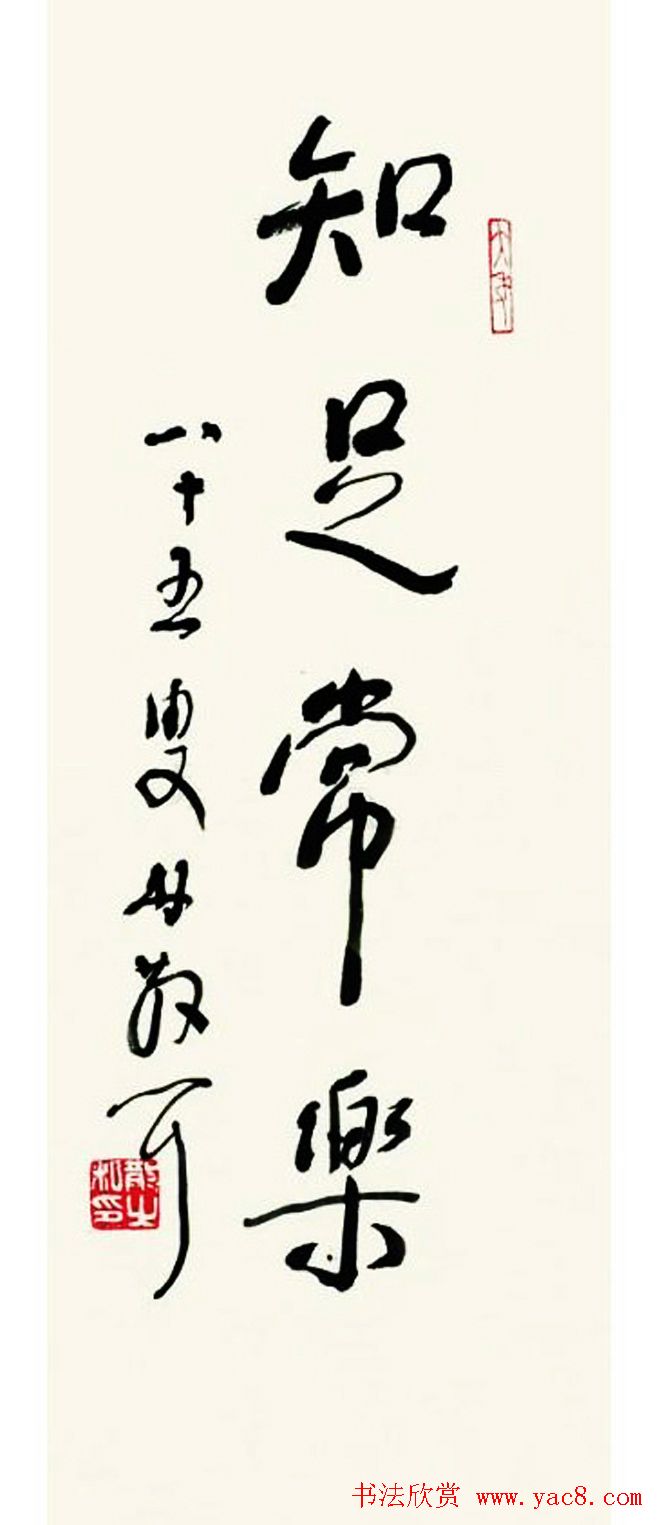 知足常樂
八十五叟林散耳
書法欣赏 www.yac8.com